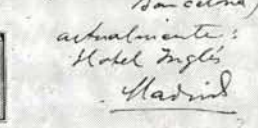 Barcelona)
actualmente:
Hotel Inglés
Madrid